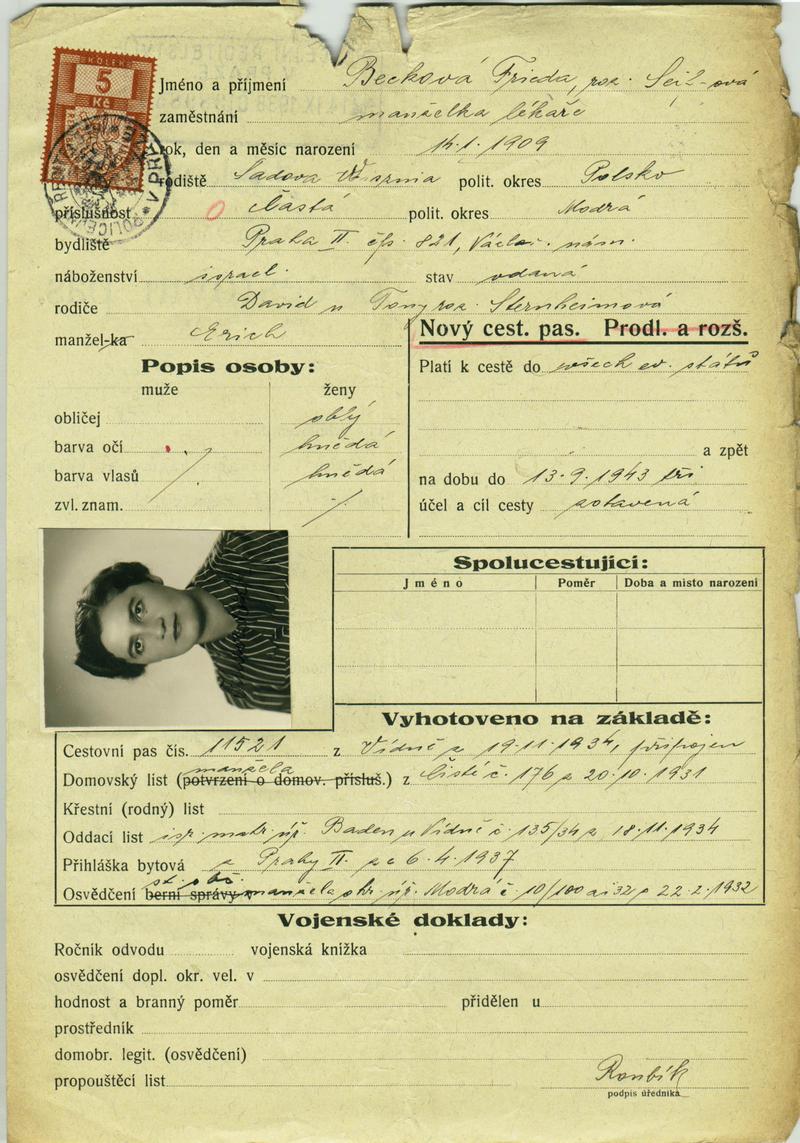 KOLEK
5
Kč
Jméno a příjmení Becková Frieda, roz.
zaměstnání manželka lékaře
rok, den a měsíc narození 14.1.1909
rodiště Sadova polit. okres Polsko
příslušnost Častá polit. okres Modrá
bydliště Praha II. čp. 821, Václav. nám.
náboženství israel. stav vdaná
rodiče David u Tony roz. Sternheimová
manžel-ka Erich
Nový cest. pas. Prodl. a rozš.
Popis osoby:
muže ženy
obličej oblý
barva očí hnědá
barva vlasů hnědá
zvl. znam.
Platí k cestě do všech ev. států
a zpět
na dobu do 13.9.1943 tři
účel a cíl cesty zotavená
Spolucestující:
Jméno Poměr Doba a místo narození
Vyhotoveno na základě:
Cestovní pas čís. 11521 z Vídně z 19.11.1934, připojen
manžela
Domovský list (potvrzení o domov. přísluš.) z Častá č. 176 z 20.10.1931
Křestní (rodný) list
Oddací list isr. matr. úř. Baden u Vídně č. 135/34 z 18.11.1934
Přihláška bytová z Prahy II. ze 6.4.1937
st. obč.
Osvědčení berní správy manžela okr. úř. Modrá č. 10/100 ai 32 z 22.2.1932
Vojenské doklady:
Ročník odvodu vojenská knížka
osvědčení dopl. okr. vel. v
hodnost a branný poměr přidělen u
prostředník
domobr. legit. (osvědčení)
propouštěcí list
Roubík
podpis úředníka